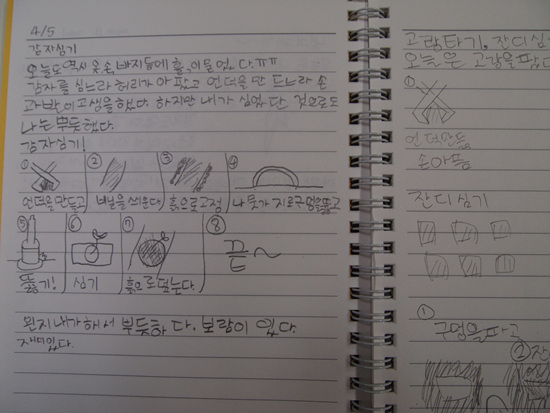 4/5
감자심기
오늘도 역시 옷, 손, 바지등에 흙이 묻었다.ㅠㅠ
감자를 심느라 허리가 아팠고 언덕을 만드느라 손
과 발이 고생을 했다. 하지만 내가 심었단 것으로도
나는 뿌듯했다.
감자심기!
① ② ③ ④
언덕을 만들고 비닐을 씌운다 흙으로 고정 나뭇가지로 구멍을 뚫고
⑤ ⑥ ⑦ ⑧
뚫기! 심기 흙으로 덮는다. 끝~
왠지 내가 해서 뿌듯하다. 보람이 있다.
재미있다.
고랑타기, 잔디심
오늘은 고랑을 팠
①
언덕만듦
손아픔
잔디 심기
①
구멍을 파고
② 잔